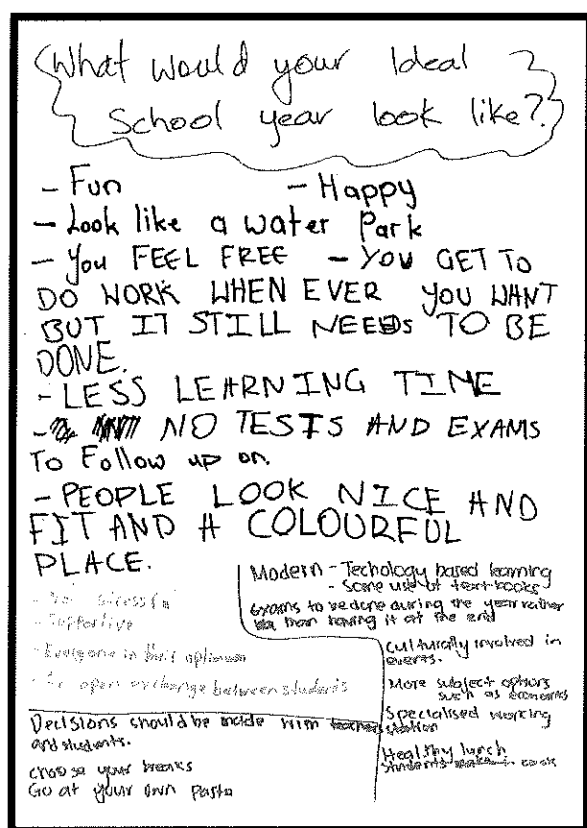 What would your Ideal
School year look like?
- Fun - Happy
- Look like a water Park
- You FEEL FREE - YOU GET TO
DO WORK WHEN EVER YOU WANT
BUT IT STILL NEEDS TO BE
DONE.
- LESS LEARNING TIME
- NO TESTS AND EXAMS
To Follow up on.
- PEOPLE LOOK NICE AND
FIT AND A COLOURFUL
PLACE.
- Not stressful
- Supportive
- Everyone in their optimum
- open exchange between students
Decisions should be made with teachers
and students.
choose your breaks
Go at your own
Modern - Techology based learning
- Some use of textbooks
exams to be done during the year rather
than having it at the end
culturally involved in
events.
More subject options
such as economics
Specialised working
station
Healthy lunch
students cook